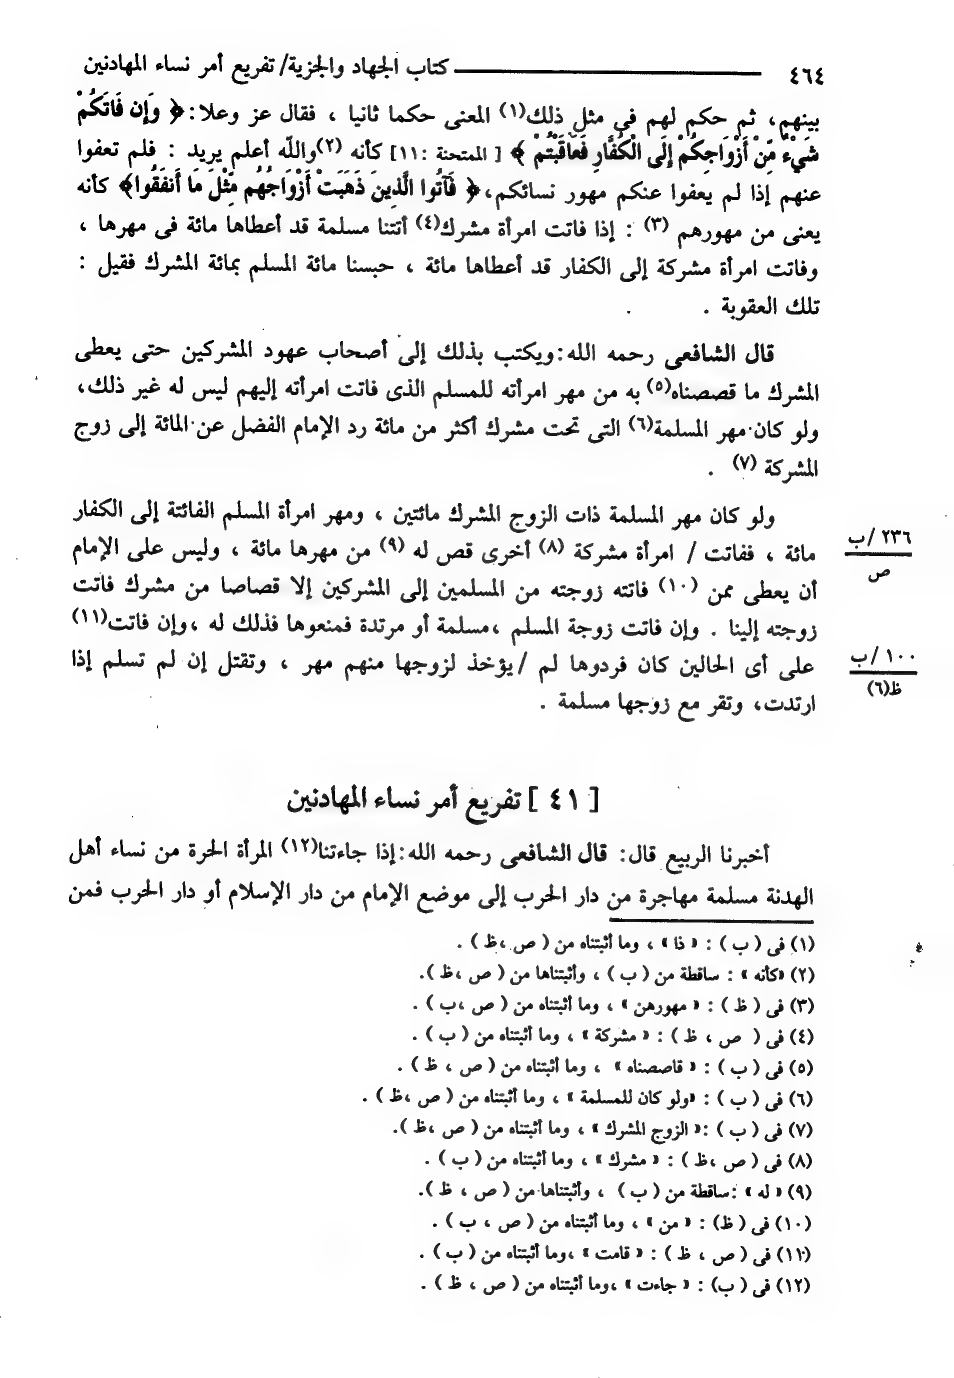 ٤٦٤ ــــــــــ كتاب الجهاد والجزية/ تفريع أمر نساء المهادنين
بينهم، ثم حكم لهم فى مثل ذلك(١) المعنى حكما ثانيا ، فقال عز وعلا: ﴿ وَإِن فَاتَكُمْ
شَيْءٌ مِّنْ أَزْوَاجِكُمْ إِلَى الْكُفَّارِ فَعَاقَبْتُمْ ﴾ [ الممتحنة :١١] كأنه (٢)والله أعلم يريد : فلم تعفوا
عنهم إذا لم يعفوا عنكم مهور نسائكم، ﴿ فَآتُوا الَّذِينَ ذَهَبَتْ أَزْوَاجُهُم مِّثْلَ مَا أَنفَقُوا﴾ كأنه
يعنى من مهورهم (٣) : إذا فاتت امرأة مشرك(٤) أتتنا مسلمة قد أعطاها مائة فى مهرها ،
وفاتت امرأة مشركة إلى الكفار قد أعطاها مائة ، حبسنا مائة المسلم بمائة المشرك فقيل :
تلك العقوبة .
قال الشافعى رحمه الله :ويكتب بذلك إلى أصحاب عهود المشركين حتى يعطى
المشرك ما قصصناه(٥) به من مهر امرأته للمسلم الذى فاتت امرأته إليهم ليس له غير ذلك،
ولو كان مهر المسلمة(٦) التى تحت مشرك أكثر من مائة رد الإمام الفضل عن المائة إلى زوج
المشركة (٧) .
ولو كان مهر المسلمة ذات الزوج المشرك مائتين ، ومهر امرأة المسلم الفائتة إلى الكفار
مائة ، ففاتت / امرأة مشركة (٨) أخرى قص له (٩) من مهرها مائة ، وليس على الإمام
٢٣٦ /ب
ص
أن يعطى ممن (١٠) فاتته زوجته من المسلمين إلى المشركين إلا قصاصا من مشرك فاتت
زوجته إلينا . وإن فاتت زوجة المسلم ،مسلمة أو مرتدة فمنعوها فذلك له ،وإن فاتت(١١)
على أى الحالين كان فردوها لم /يؤخذ لزوجها منهم مهر ، وتقتل إن لم تسلم إذا
١٠٠ /ب
ظ(٦)
ارتدت، وتقر مع زوجها مسلمة .
[ ٤١ ] تفريع أمر نساء المهادنين
أخبرنا الربيع قال: قال الشافعى رحمه الله :إذا جاءتنا(١٢) المرأة الحرة من نساء أهل
الهدنة مسلمة مهاجرة من دار الحرب إلى موضع الإمام من دار الإسلام أو دار الحرب فمن
(١) فى ( ب ) : « ذا » ، وما أثبتناه من ( ص ،ظ ) .
(٢) «كأنه » : ساقطة من ( ب ) ، وأثبتناها من ( ص ،ظ ).
(٣) فى ( ظ ) : « مهورهن » ، وما أثبتناه من ( ص ،ب ) .
(٤) فى ( ص ، ظ ) : « مشركة » ، وما أثبتناه من ( ب ) .
(٥) فى ( ب ) : « قاصصناه » ، وما أثبتناه من ( ص ، ظ ) .
(٦) فى ( ب ) : «ولو كان للمسلمة » ، وما أثبتناه من ( ص ،ظ ) .
(٧) فى ( ب ) :« الزوج المشرك » ، وما أثبتناه من ( ص ،ظ ).
(٨) فى ( ص ،ظ ) : « مشرك » ، وما أثبتناه من ( ب ) .
(٩) « له » :ساقطة من ( ب ) ، وأثبتناها من ( ص ، ظ ).
(١٠) فى ( ظ) : « من » ، وما أثبتناه من ( ص ، ب ) .
(١١) فى ( ص ، ظ ) : « قامت » ،وما أثبتناه من ( ب ) .
(١٢) فى ( ب) : « جاءت » ،وما أثبتناه من ( ص ، ظ ) .